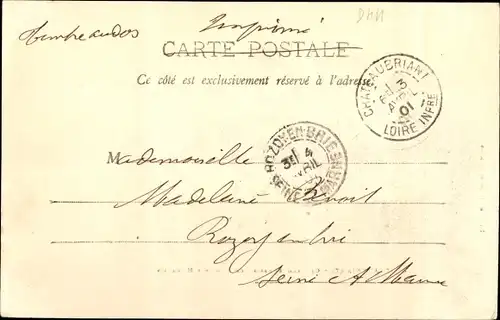 timbre au dos
Imprimé
CARTE POSTALE
Ce côté est exclusivement réservé à l'adresse
CHATEAUBRIANT
3
AVRIL
01
LOIRE INFRE
ROZOY-EN-BRIE
3E 4
AVRIL
SEINE ET MARNE
Mademoiselle
Madeleine Benoit
Rozoy en brie
Seine et Marne